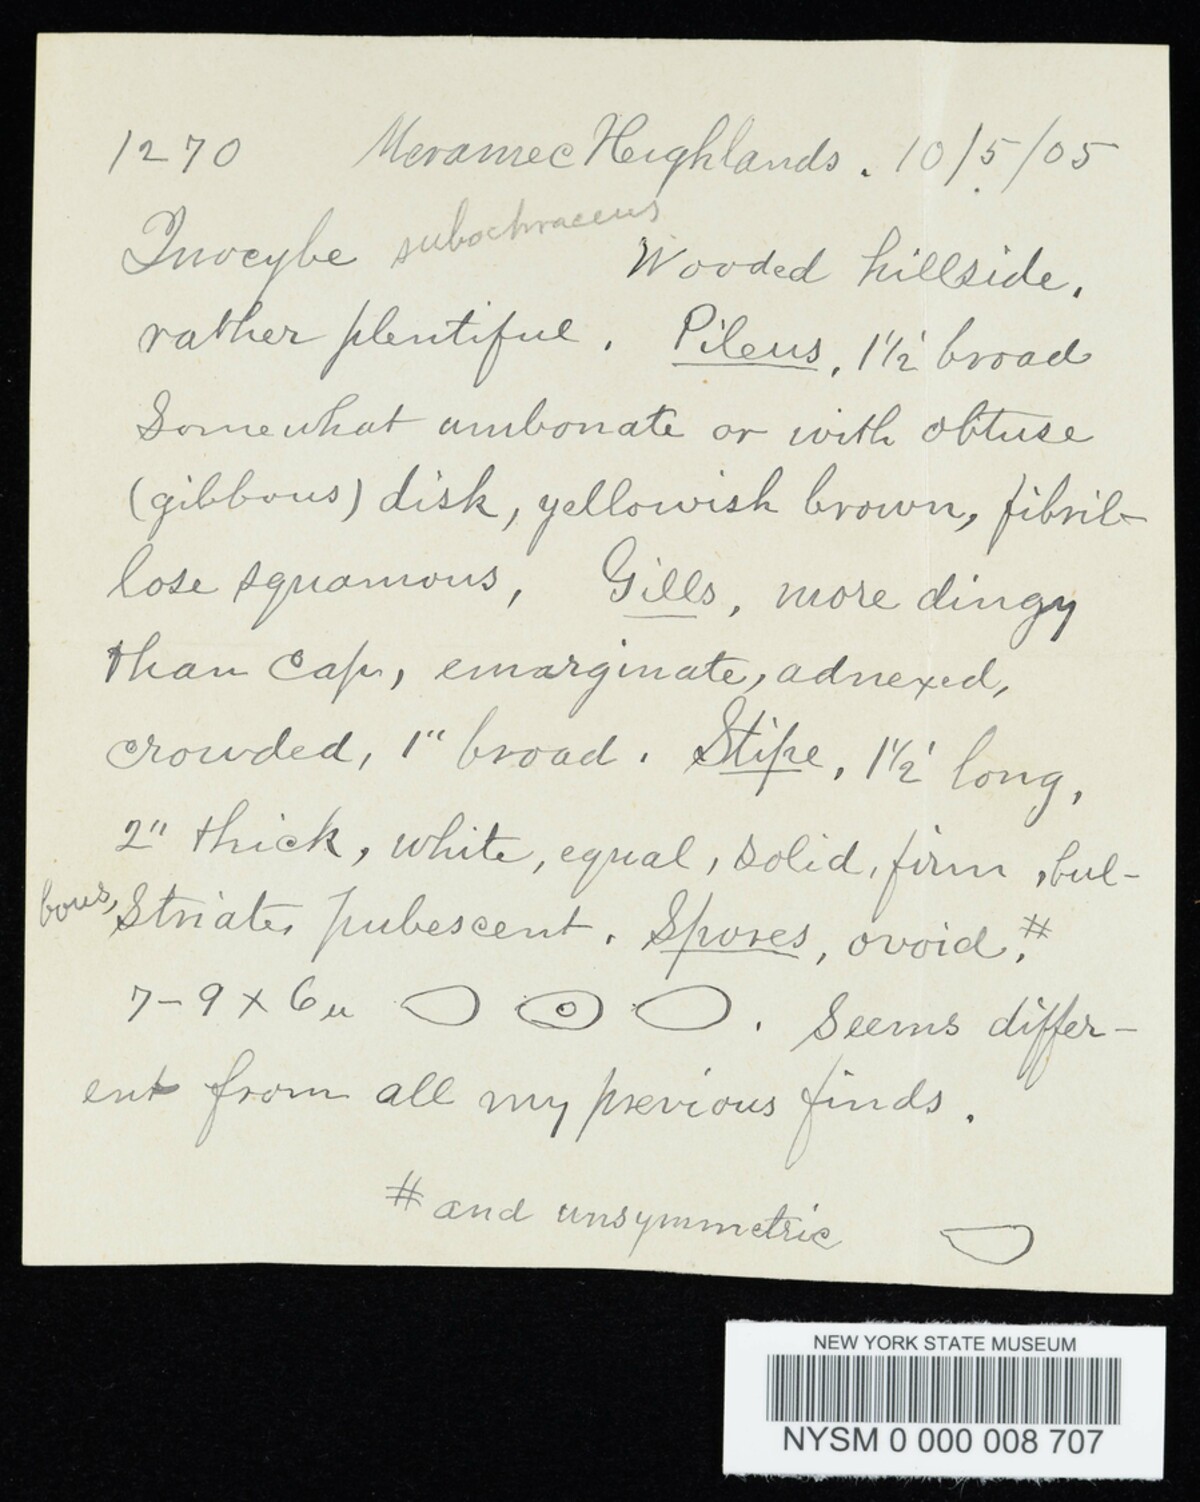 1270 Meramec Heighlands. 10/5/05
Inocybe subochraceus Wooded hillside,
rather plentiful. Pileus, 1½' broad
Somewhat umbonate or with obtuse
(gibbous) disk, yellowish brown, fibril-
lose squamous, Gills, more dingy
than cap, emarginate, adnexed,
crowded, 1" broad. Stipe, 1½' long,
2" thick, white, equal, solid, firm, bul-
bous, striate, pubescent. Spores, ovoid,#
7-9 x 6u . Seems differ-
ent from all my previous finds.
# and unsymmetric
NEW YORK STATE MUSEUM
NYSM 0 000 008 707